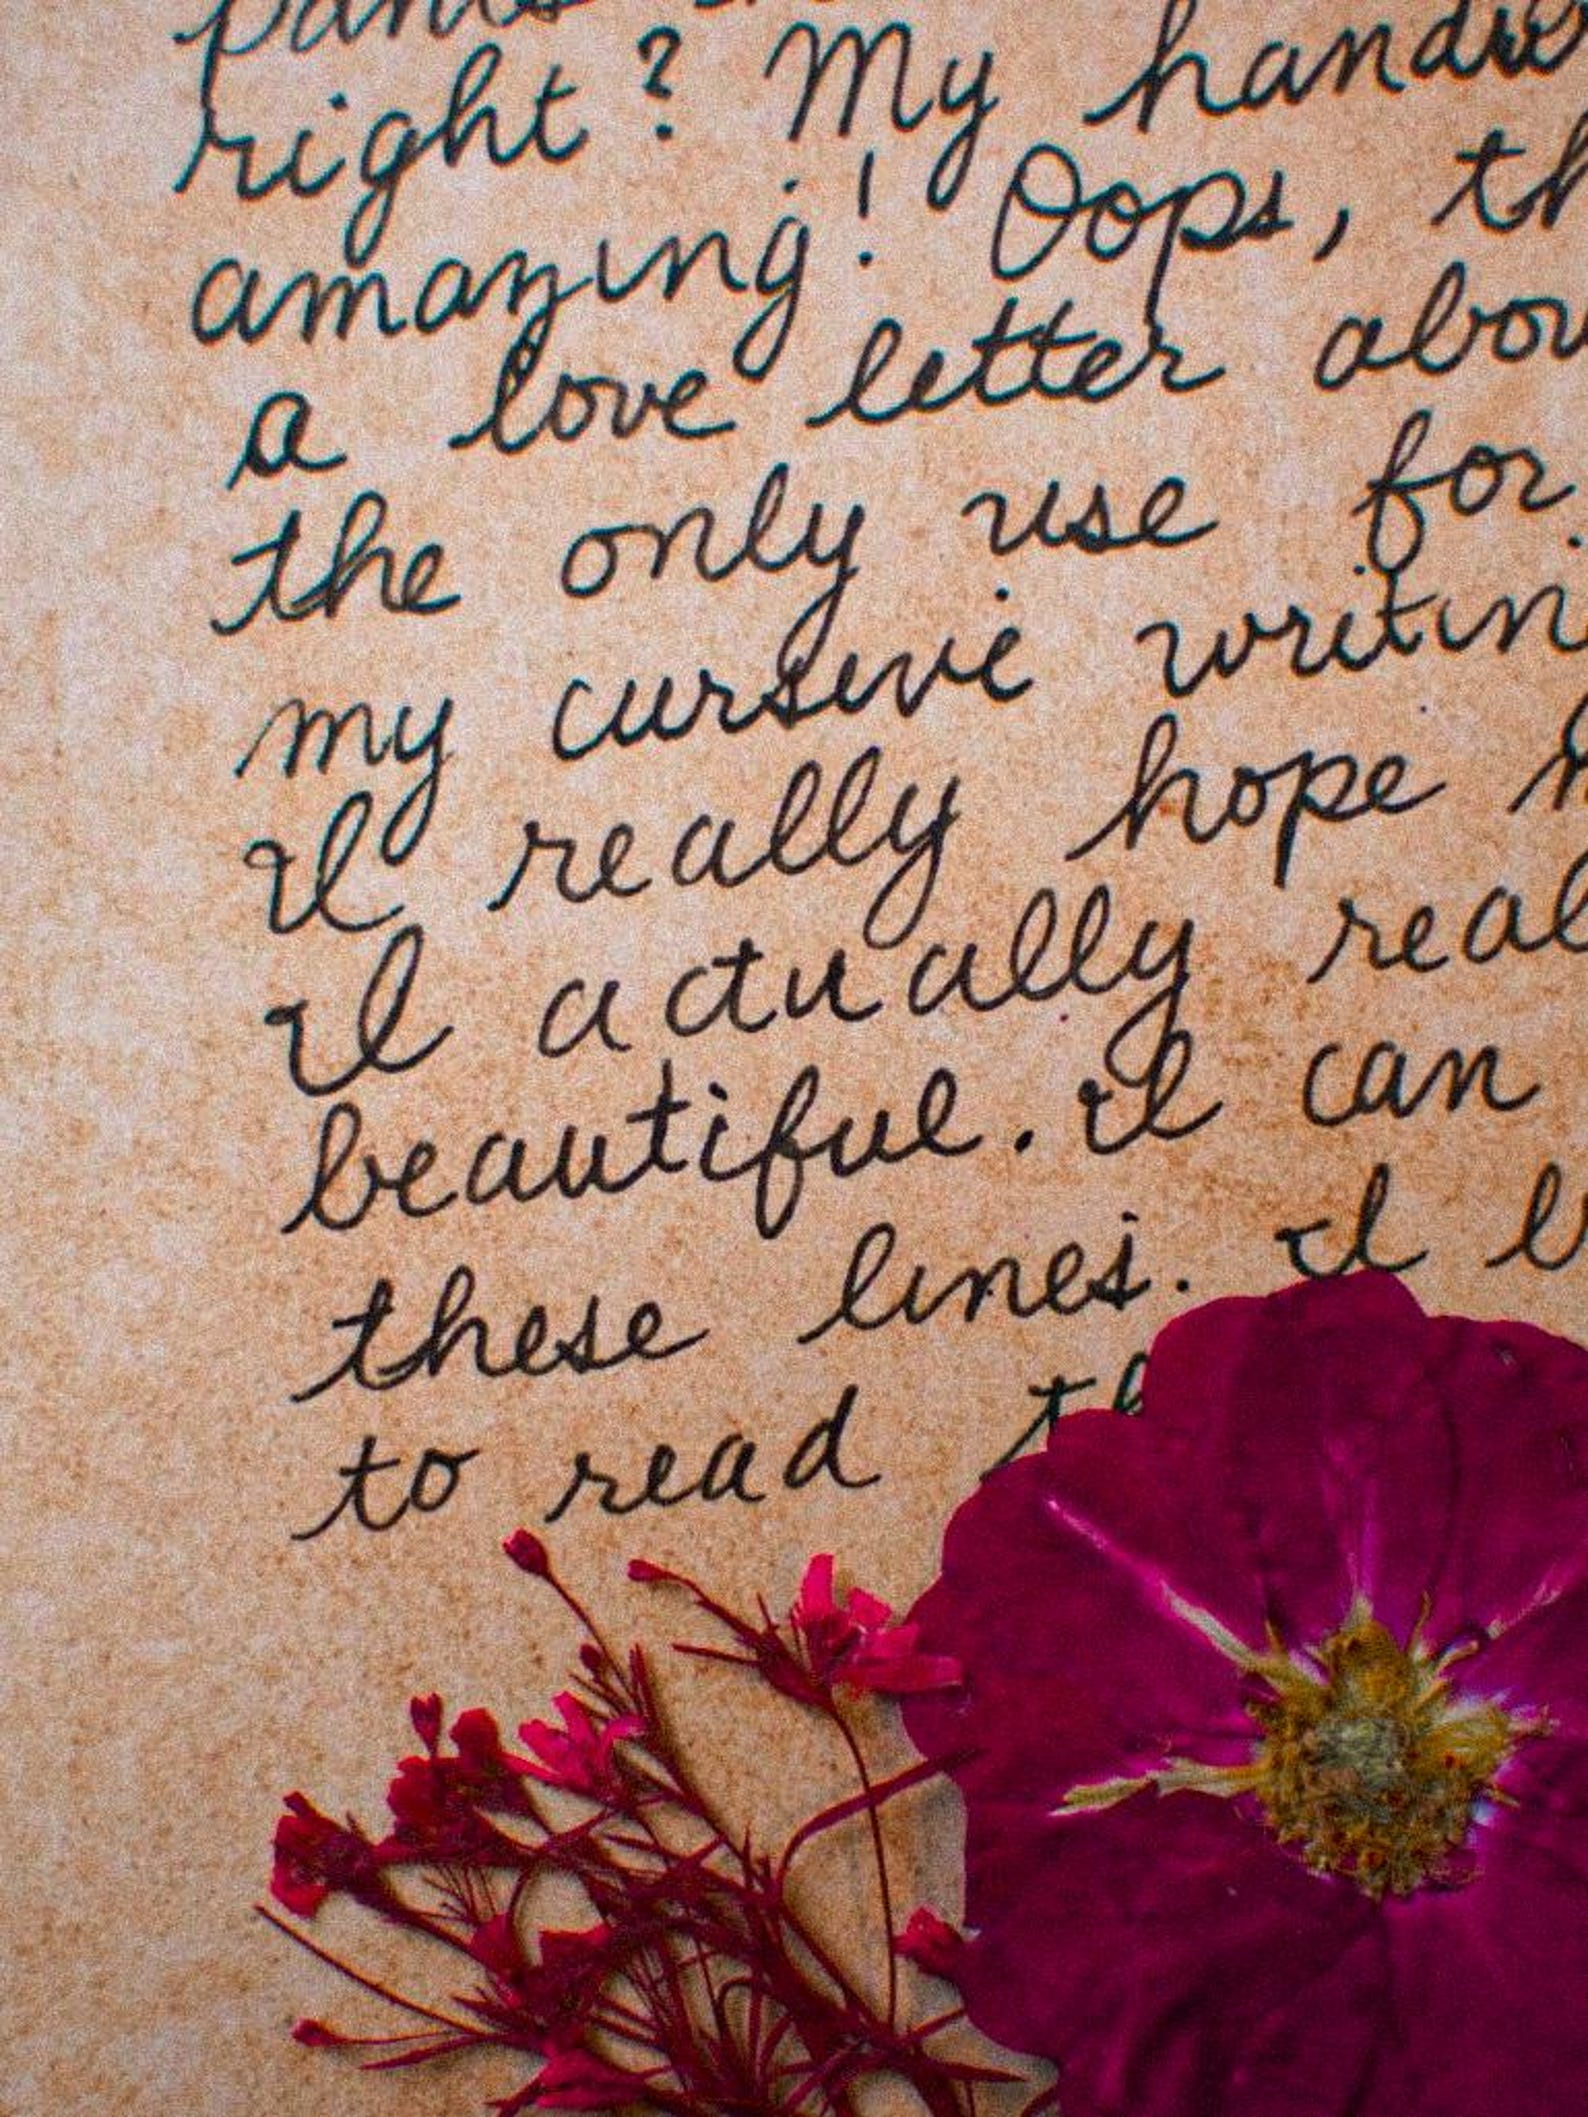 right? My
amazing! Oops,
a love letter
the only use for
my cursive
I really hope
I actually
beautiful. I can
these lines. I
to read